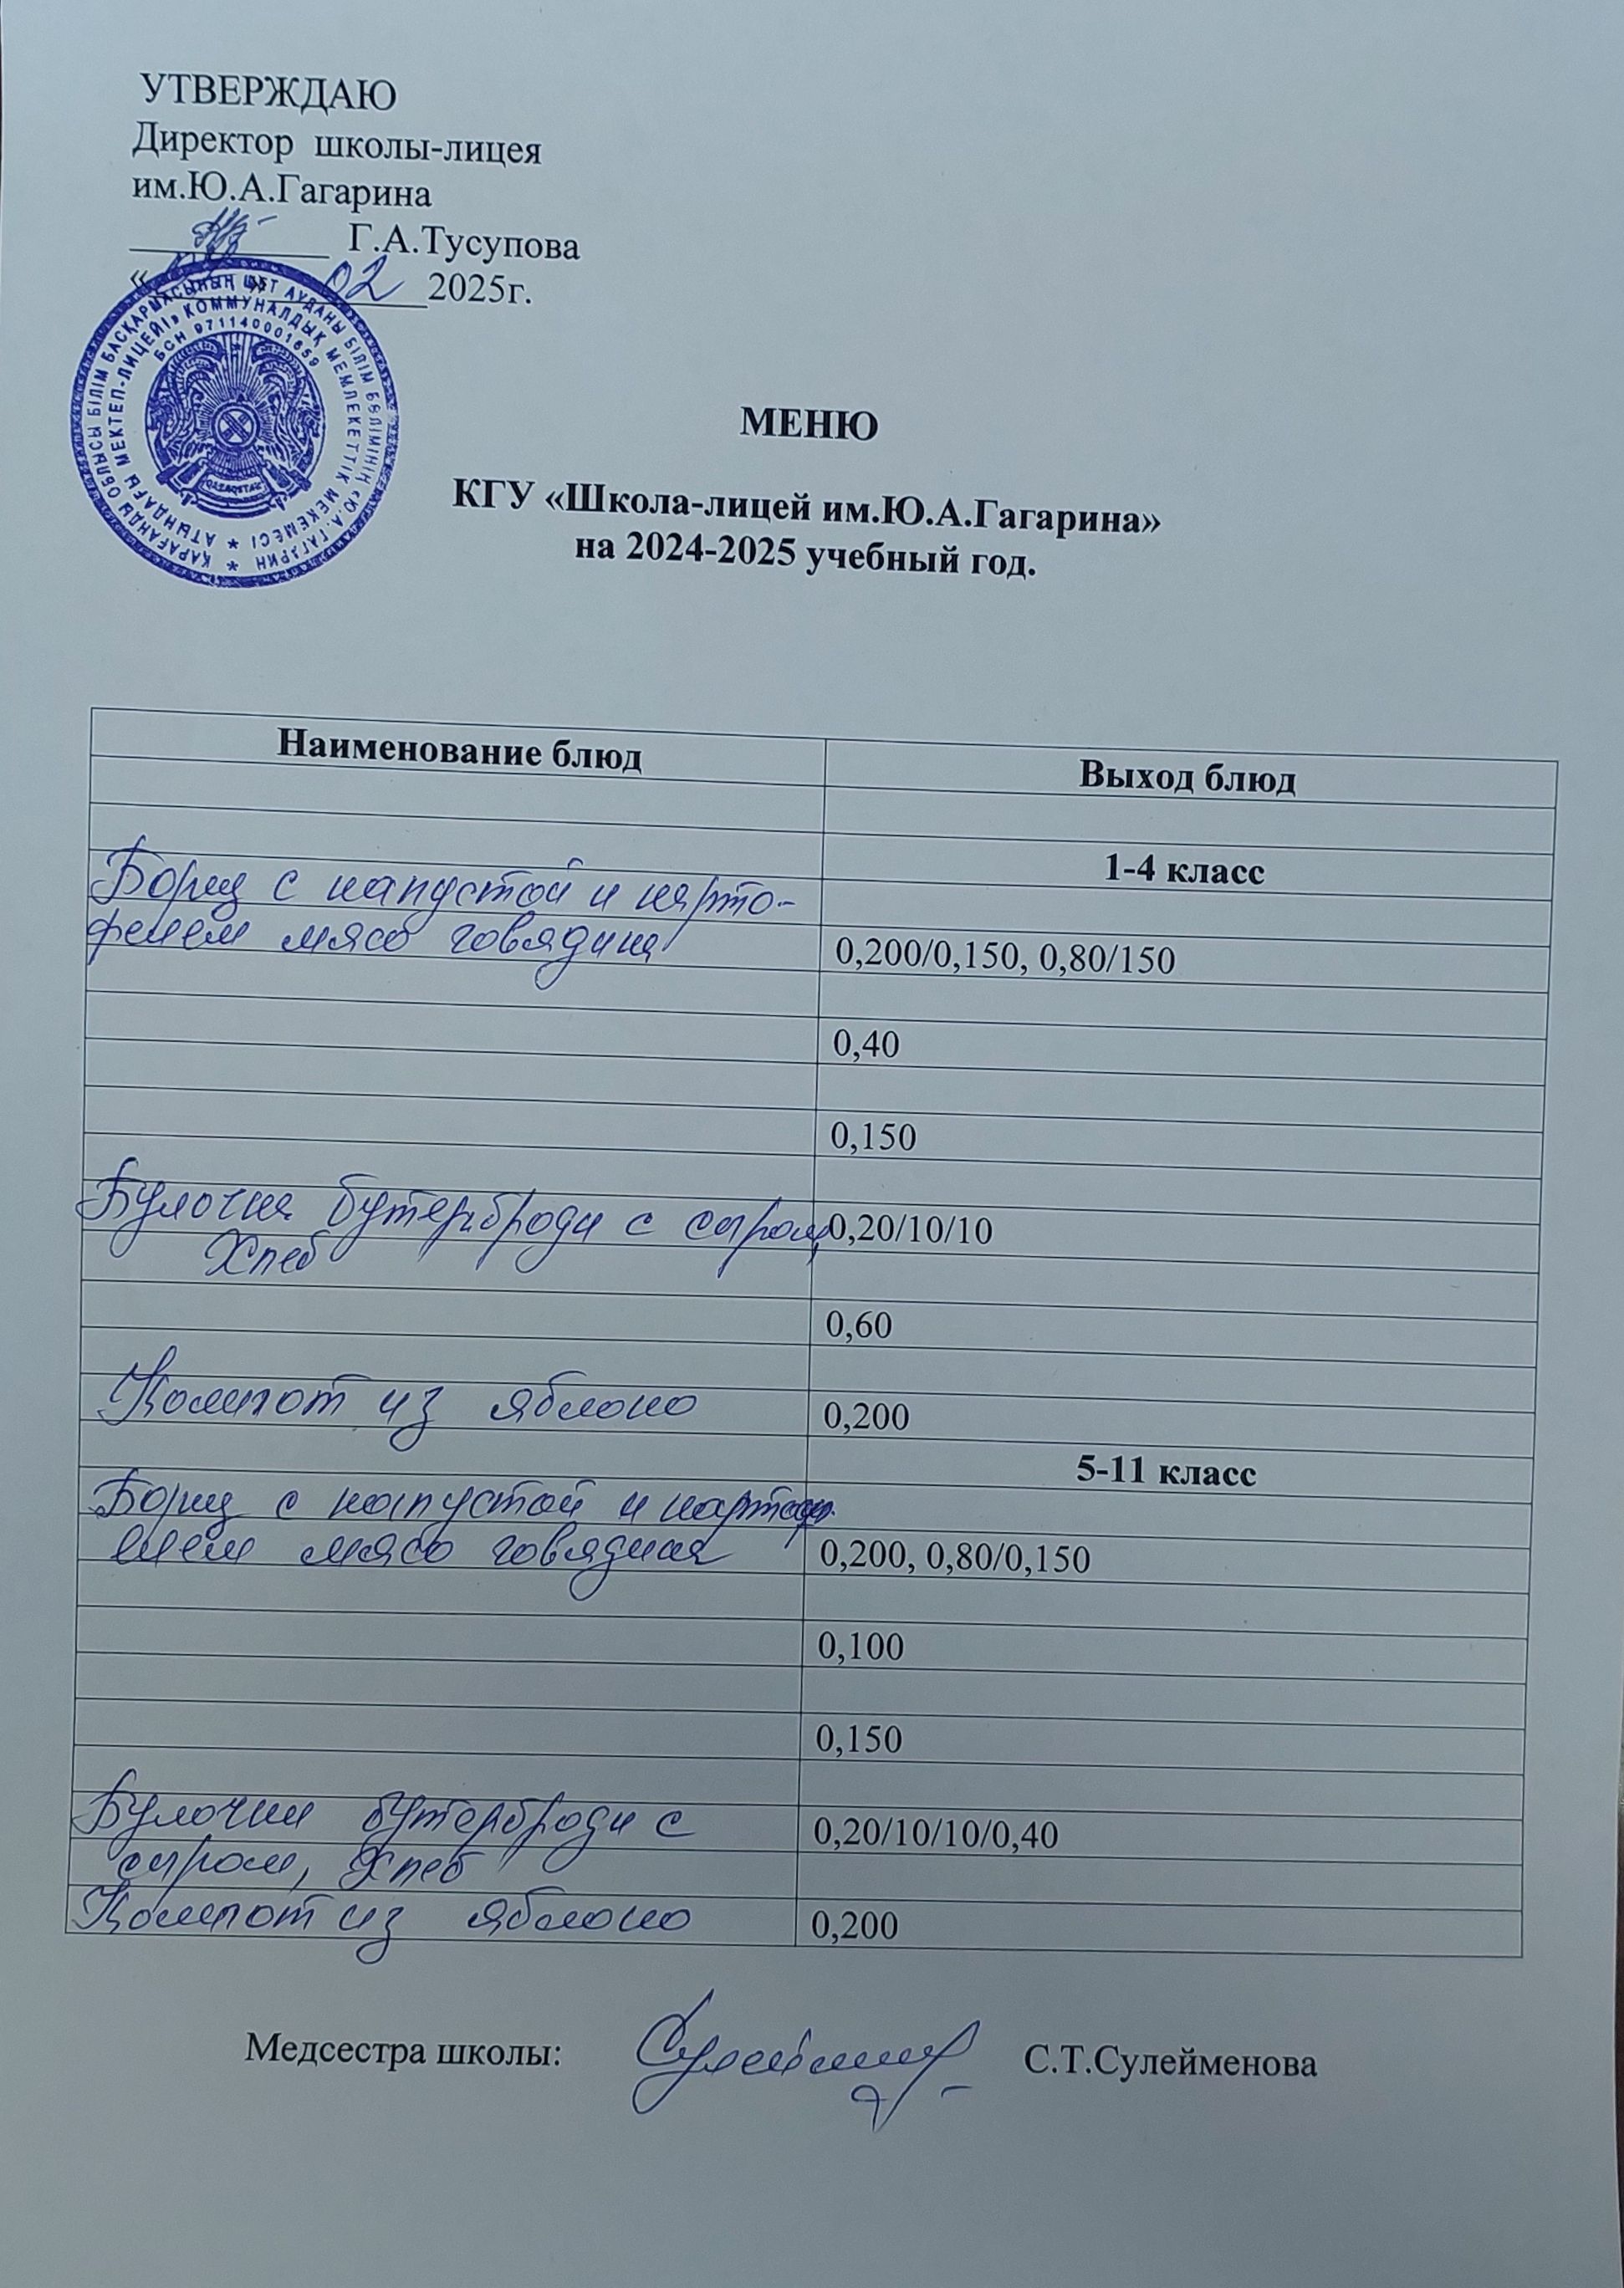 УТВЕРЖДАЮ
Директор школы-лицея
им.Ю.А.Гагарина
Г.А.Тусупова
« » 02 2025г.
ҚАРАҒАНДЫ ОБЛЫСЫ БІЛІМ БАСҚАРМАСЫНЫҢ ШЕТ АУДАНЫ БІЛІМ БӨЛІМІНІҢ «Ю.А.ГАГАРИН
АТЫНДАҒЫ МЕКТЕП-ЛИЦЕЙІ» КОММУНАЛДЫҚ МЕМЛЕКЕТТІК МЕКЕМЕСІ
БСН 971140001659
QAZAQSTAN
МЕНЮ
КГУ «Школа-лицей им.Ю.А.Гагарина»
на 2024-2025 учебный год.
Наименование блюд Выход блюд
1-4 класс
Борщ с капустой и карто-
фелем мясо говядина 0,200/0,150, 0,80/150
0,40
0,150
Булочка бутерброди с сыром, 0,20/10/10
Хлеб
0,60
Компот из яблоко 0,200
5-11 класс
Борщ с капустой и картоф
елем мясо говядина 0,200, 0,80/0,150
0,100
0,150
Булочки бутерброди с 0,20/10/10/0,40
сыром, Хлеб
Компот из яблоко 0,200
Медсестра школы: С.Т.Сулейменова